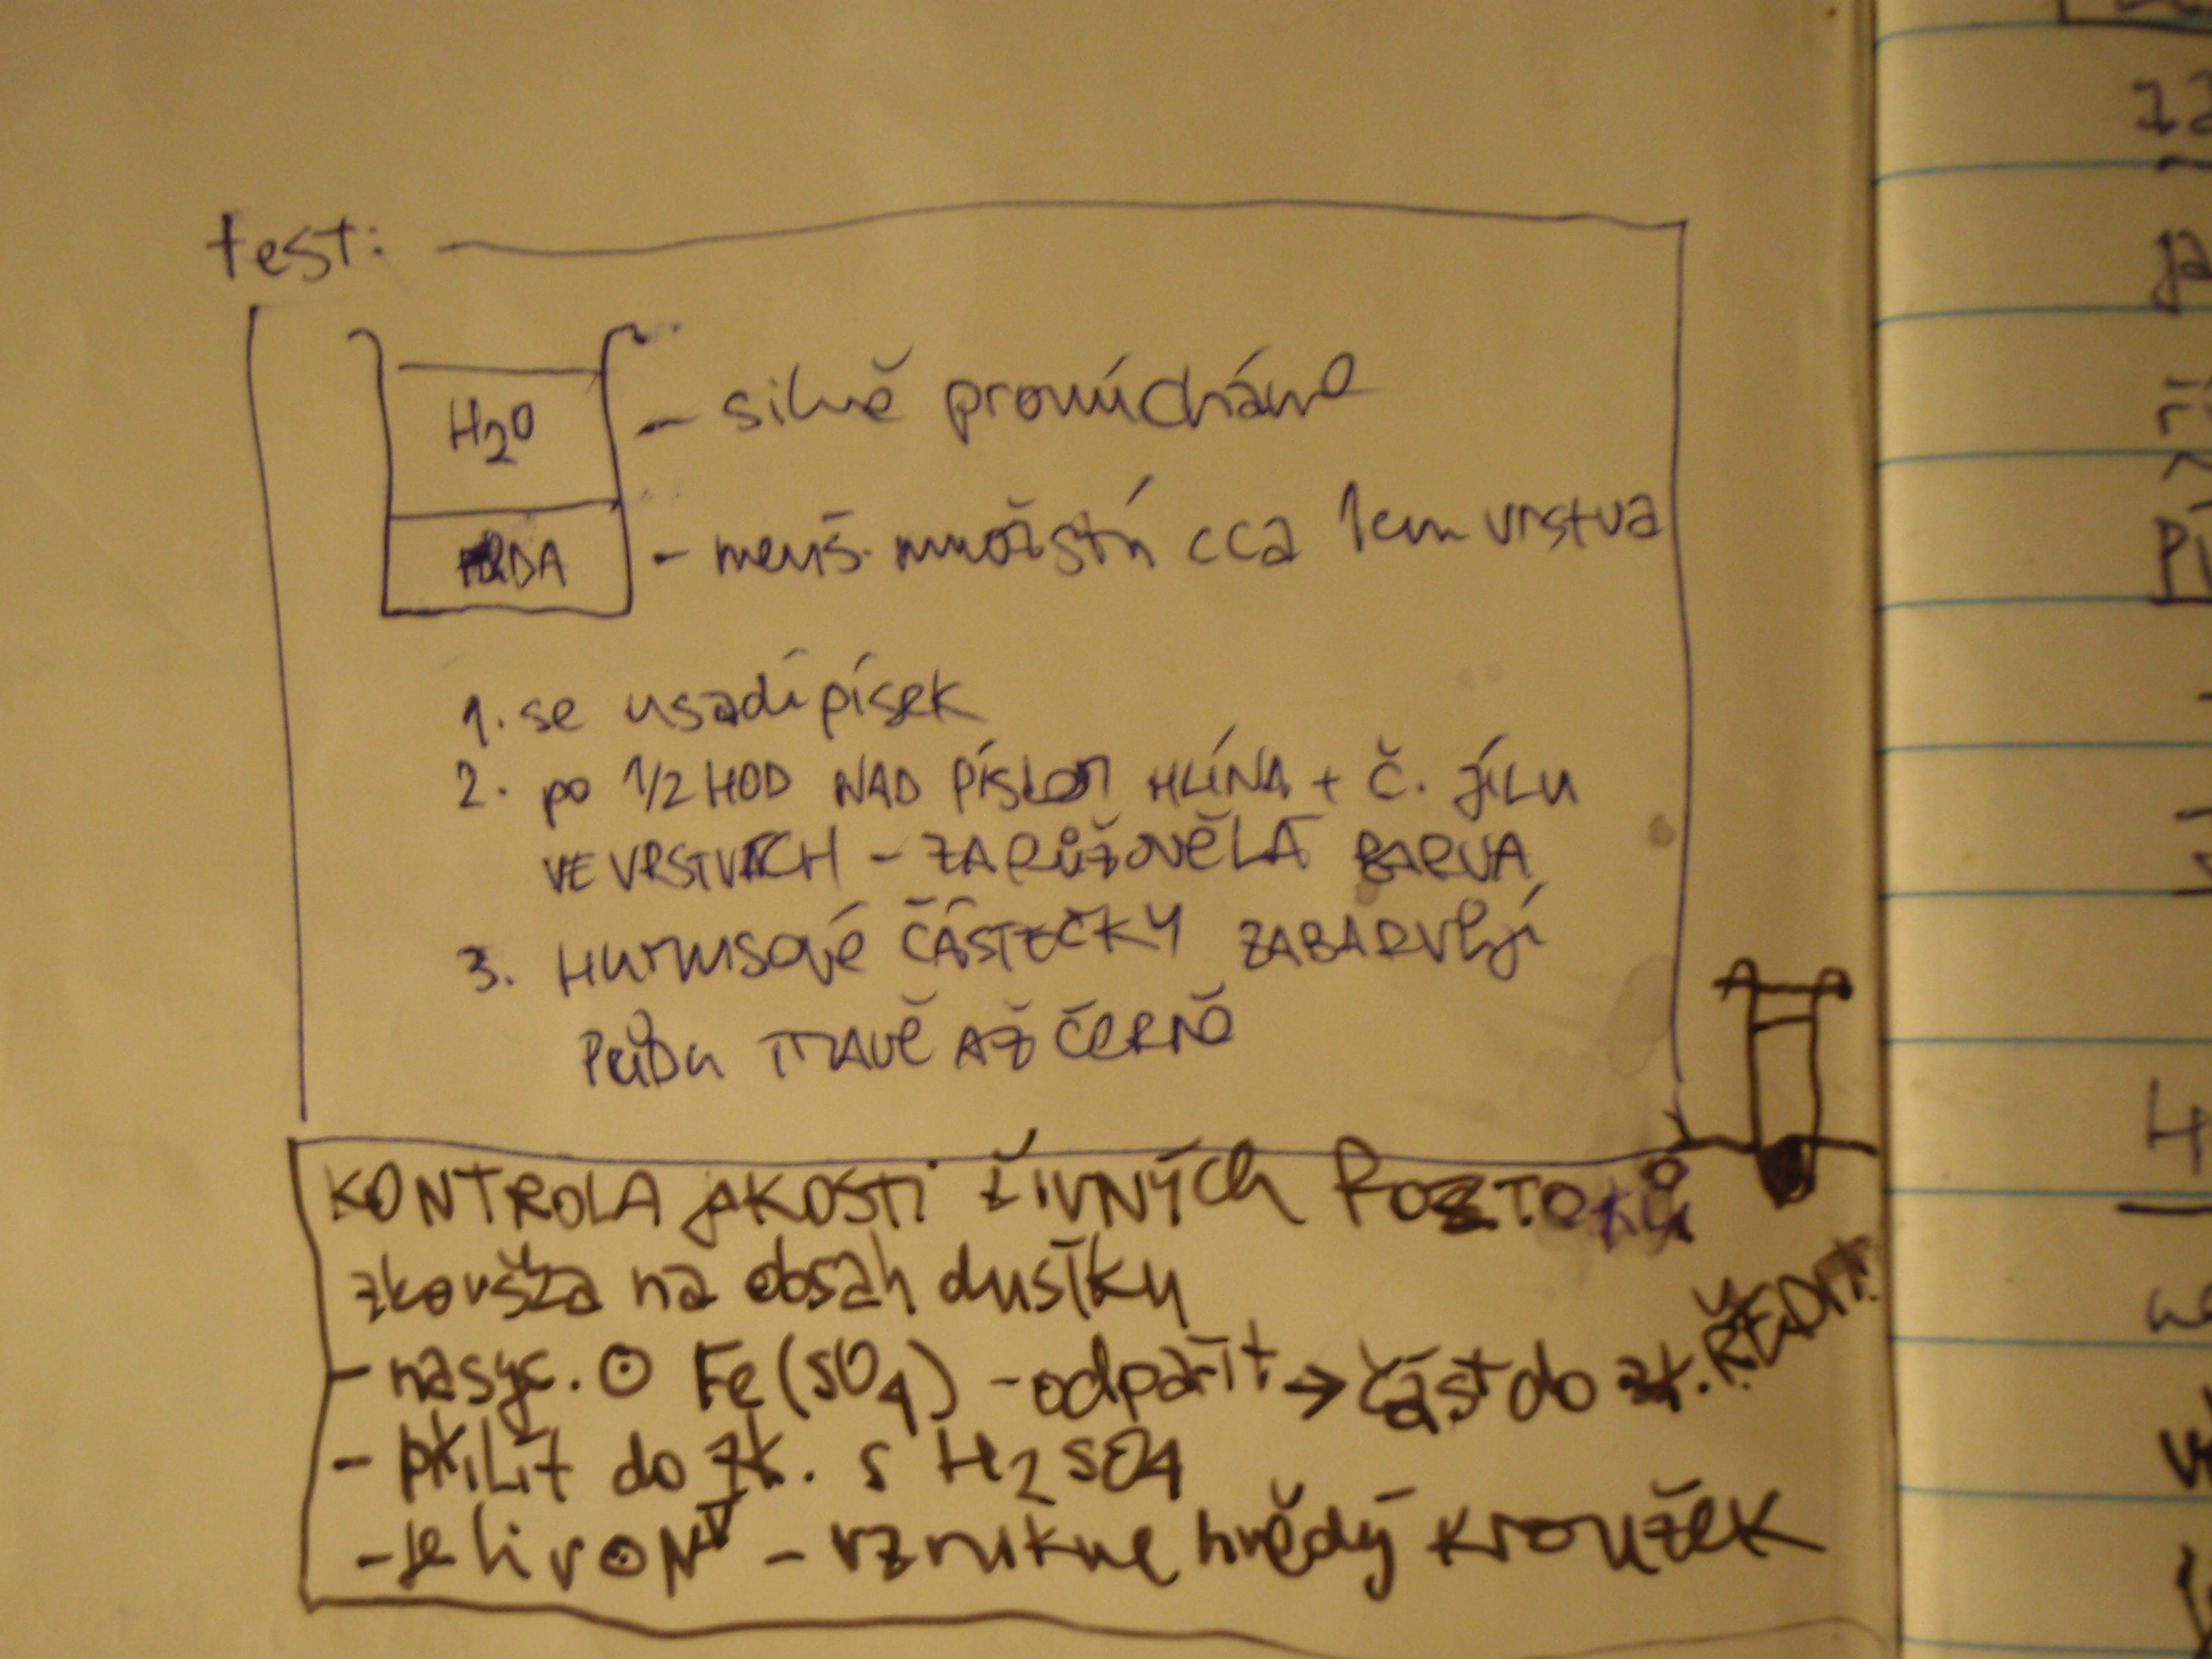 test:
H2O
- silně promícháme
PŮDA
- menš. množství cca 1cm vrstva
1. se usadí písek
2. po 1/2 HOD NAD PÍSKEM HLÍNA + Č. JÍLU
VE VRSTVÁCH - ZARŮŽOVĚLÁ BARVA
3. HUMUSOVÉ ČÁSTEČKY ZABARVUJÍ
PŮDU TMAVĚ AŽ ČERNĚ
KONTROLA JAKOSTI ŽIVNÝCH ROZTOKŮ
zkouška na obsah dusíku
- nasyc. ⊙ Fe(SO4) - odpařit → část do zk. ŘEDIT
- přilít do zk. s H2SO4
- je li v ⊙ N - vznikne hnědý kroužek